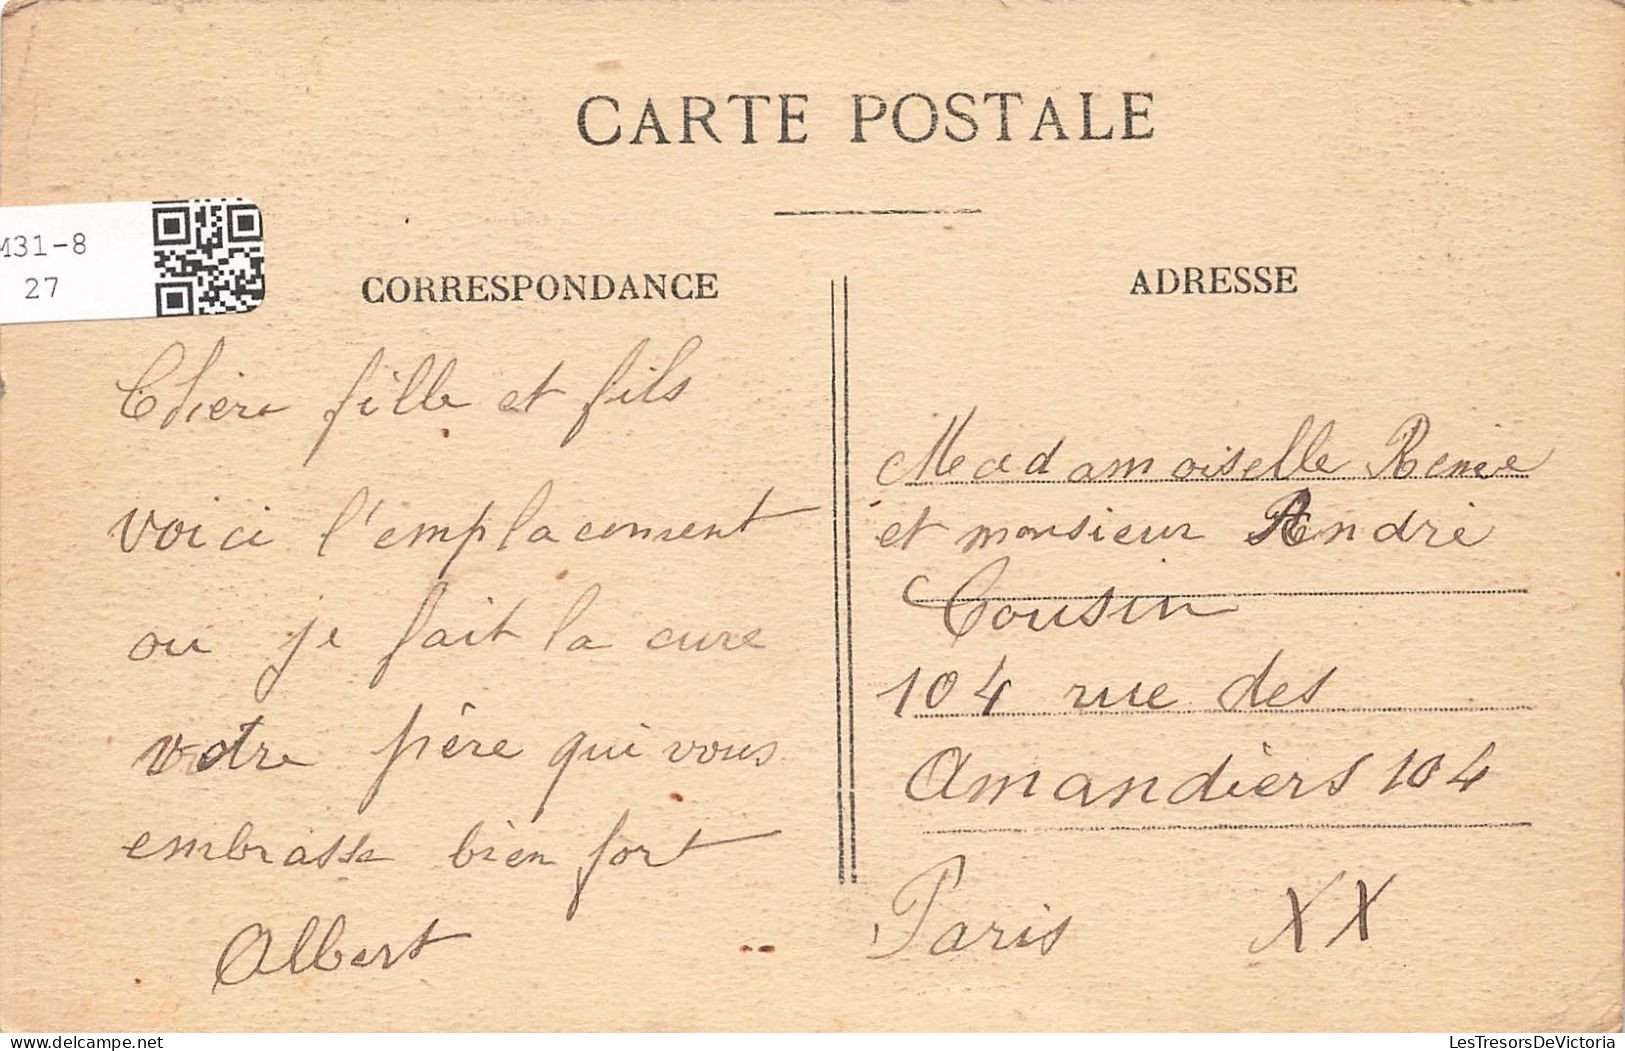 CARTE POSTALE
M31-8
27
CORRESPONDANCE
Chère fille et fils
voici l'emplacement
ou je fait la cure
votre père qui vous
embrasse bien fort
Albert
ADRESSE
Madamoiselle Renée
et monsieur André
Cousin
104 rue des
Amandièrs 104
Paris XX
LesTresorsDeVictoria